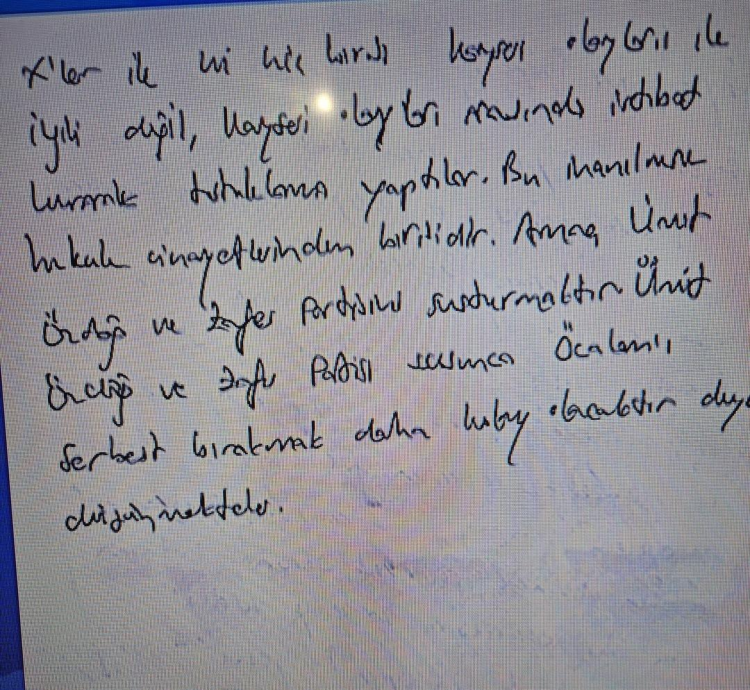 X'ler ile hiç birisi Kayseri olayları ile
ilgili değil, Kayseri olayları arasında irtibat
kurarak tutuklama yaptılar. Bu inanılmaz
hukuk cinayetlerinden birisidir. Amaç Ümit
Özdağ ve Zafer Partisini susturmaktır Ümit
Özdağ ve Zafer Partisi susunca Öcalanı
Serbest bırakmak daha kolay olacaktır diye
düşünmekteler.